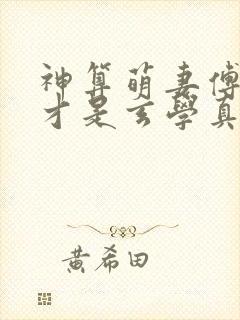 神算萌妻傅
才是玄學真
黃希田